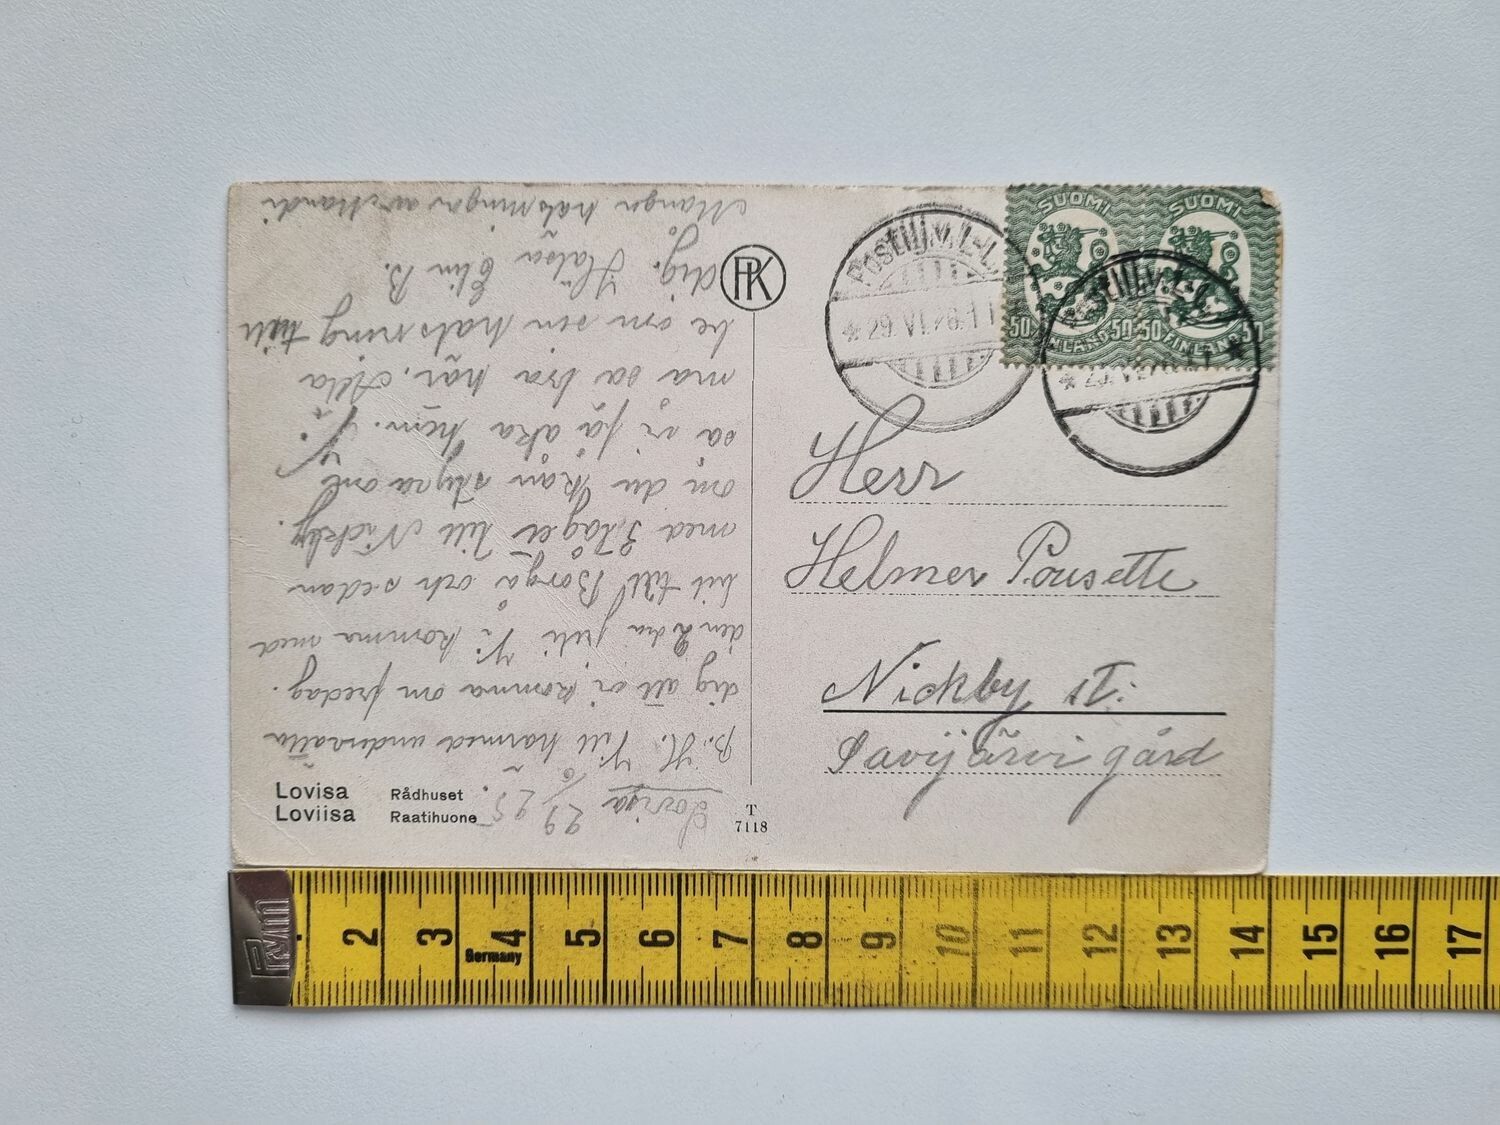 Lovisa 29/6 25.
B. H. Vill härmed underrätta
dig att vi komma om fredag.
den 2dra juli Vi komma med
bil till Borgå och sedan
med tåget till Nickby.
om du kan styra om
så vi få åka hem. Vi
må så bra här. Alla
be om sin hälsning till
dig. Hälsa Elin B.
Många hälsningar av
PK
Lovisa Rådhuset
Loviisa Raatihuone
T
7118
SUOMI SUOMI
50 FINLAND 50 50 FINLAND 50
POSTILJ.V. L-L.
* 29. VI. 26. 11
Herr
Helmer Pousette
Nickby st:
Savijärvi gård
PMI
2 3 4 5 6 7 8 9 10 11 12 13 14 15 16 17
Germany